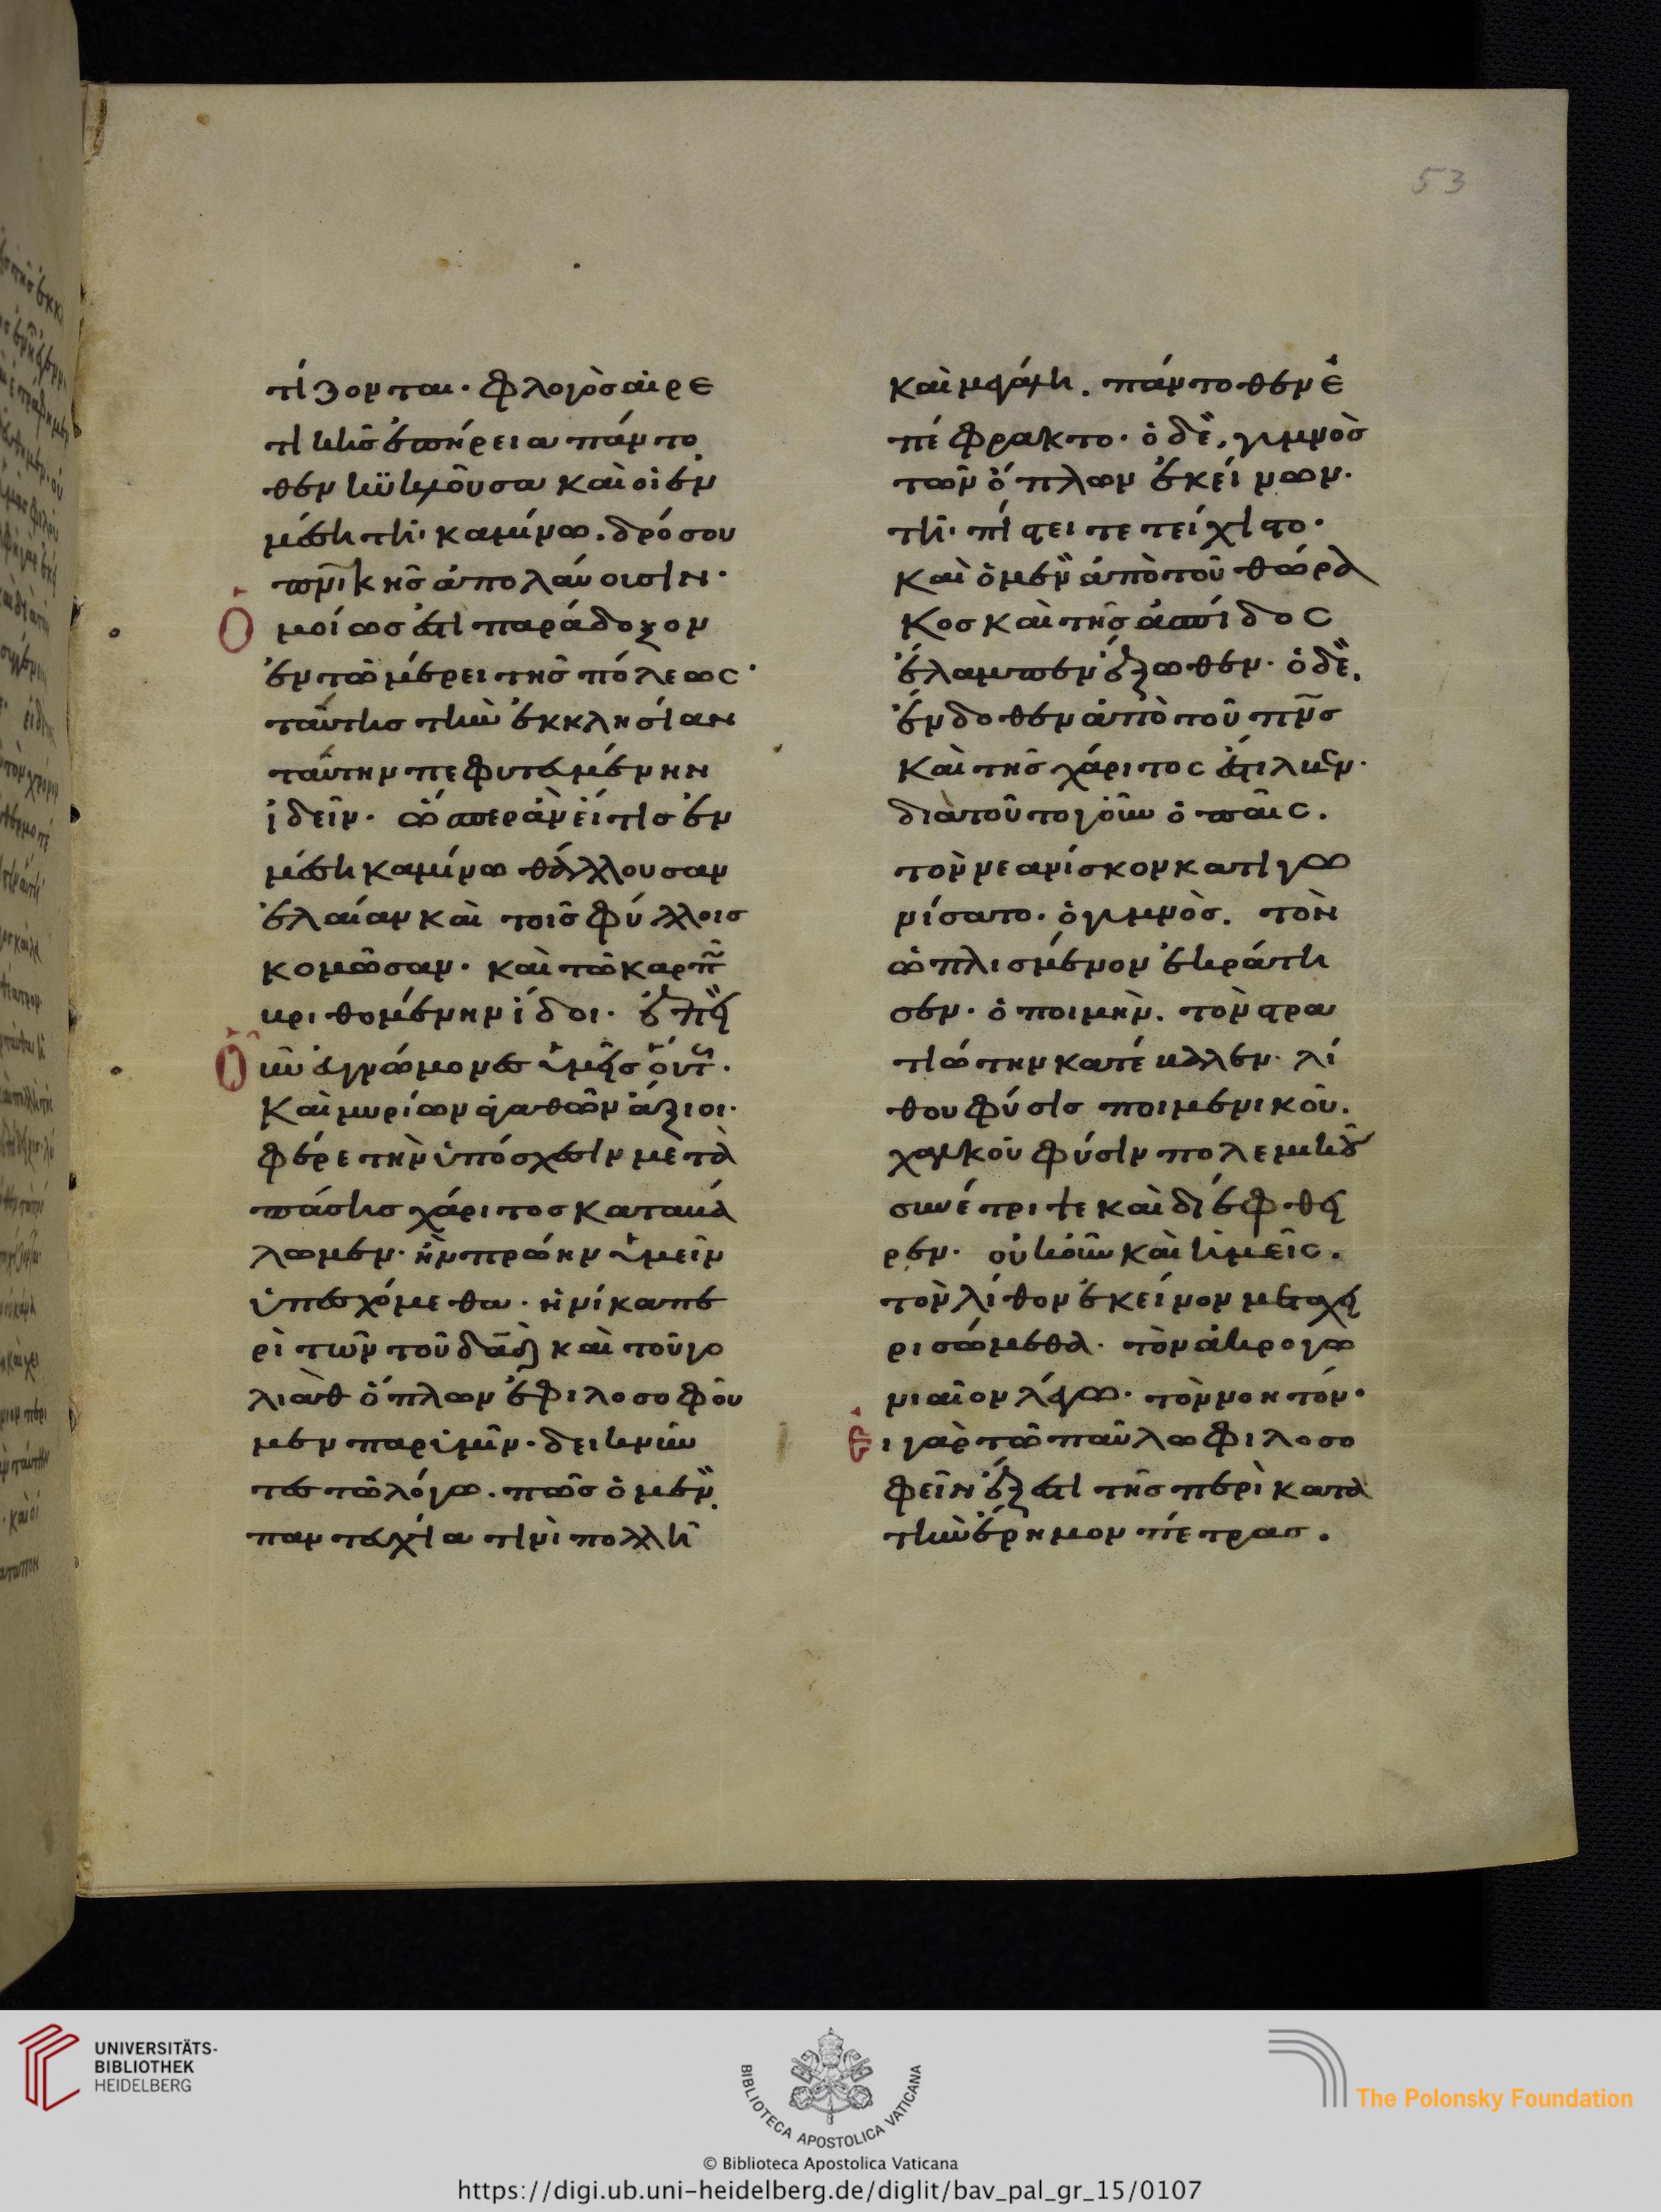 53
τίζονται· φλογὸς αἱρε
τικῆς ἐπήρεια πάντο
θεν κυκλοῦσα καὶ οἱ ἐν
μέση τῆ καμίνω. δρόσου
πνικῆς ἀπολαύουσιν·
Ὁμοίως ἐστὶ παράδοξον
ἐν τῶ μέρει τῆς πόλεως
ταύτης τὴν ἐκκλησίαν
ταύτην πεφυτεμένην
ἰδεῖν· ὥσπερ ἂν εἴ τις ἐν
μέση καμίνω θάλλουσαν
ἐλαίαν καὶ τοῖς φύλλοις
κομῶσαν· καὶ τῶ καρπῶ
βριθομένην ἴδοι· ἐπεὶ
Οὖν εὐγνώμονες ὑμεῖς ὄντες·
Καὶ μυρίων ἀγαθῶν ἄξιοι·
φέρε τὴν ὑπόσχεσιν μετὰ
πάσης χάριτος καταβά
λωμεν· ἣν πρώην ὑμεῖν
ὑπεσχόμεθα· ἡνίκα πε
ρὶ τῶν τοῦ δαδ καὶ τοῦ γο
λιὰθ ὅπλων ἐφιλοσοφοῦ
μεν παρ' ὑμῖν· δεικνύν
τες τῶ λόγω. πῶς ὁ μὲν
παντευχία τινὶ πολλῆ
καὶ μεγάλη. πάντοθεν ἐ
πέφρακτο· ὁ δὲ, γυμνὸς
τῶν ὅπλων ἐκείνων·
τῆ πίστει τετείχιστο·
Καὶ ὁ μὲν ἀπὸ τοῦ θώρα
κος καὶ τῆς ἀσπίδος
ἔλαμπεν ἔξωθεν· ὁ δὲ,
ἔνδοθεν ἀπὸ τοῦ πνς
Καὶ τῆς χάριτος ἔστιλβεν·
διὰ τοῦτο γοῦν ὁ παῖς.
τὸν νεανίσκον κατηγω
νίσατο· ὁ γυμνὸς. τὸν
ὡπλισμένον ἐκράτη
σεν· ὁ ποιμὴν. τὸν στρα
τιώτην κατέβαλλεν· λί
θου φύσις ποιμενικοῦ.
χαλκοῦ φύσιν πολεμικοῦ
συνέτριψε καὶ διέφθει
ρεν. οὐκοῦν καὶ ἡμεῖς.
τὸν λίθον ἐκεῖνον μεταχει
ρισώμεθα· τὸν ἀκρογω
νιαῖον λέγω· τὸν νοητόν·
Εἰ γὰρ τῶ παύλω φιλοσο
φεῖν ἔξεστι τῆς περὶ κατὰ
τὴν ἔρημον πέτρας.
UNIVERSITÄTS-
BIBLIOTHEK
HEIDELBERG
BIBLIOTECA APOSTOLICA VATICANA
The Polonsky Foundation
© Biblioteca Apostolica Vaticana
https://digi.ub.uni-heidelberg.de/diglit/bav_pal_gr_15/0107